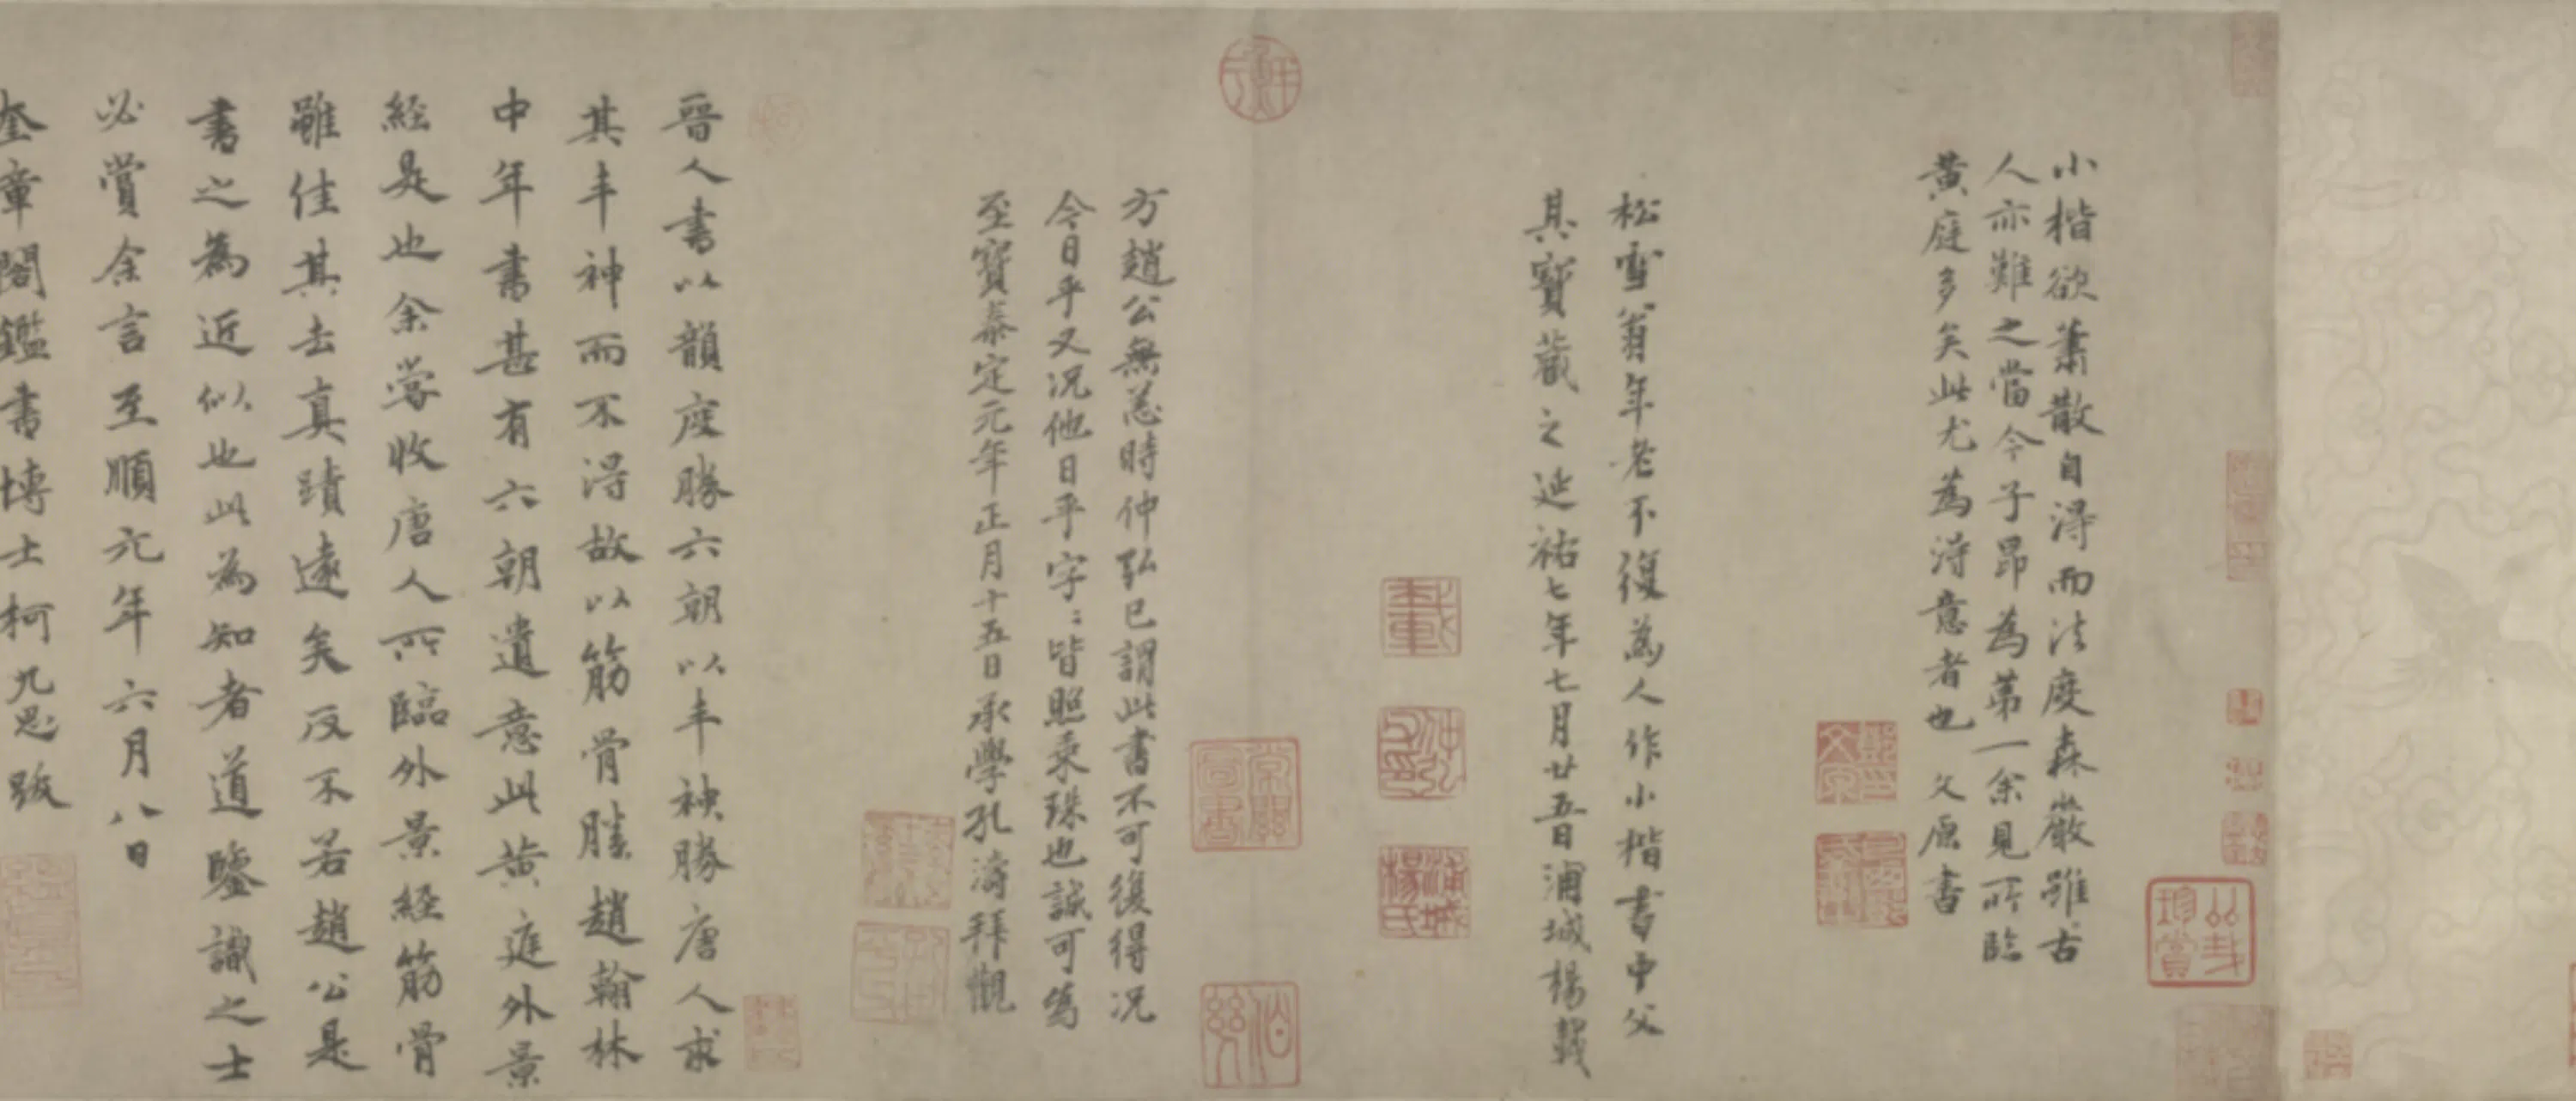 小楷欲蕭散自得而法度森嚴雖古
人亦難之當今子昂為第一余見所臨
黃庭多矣此尤為得意者也 文原書
松雪翁年老不復為人作小楷書中父
其寶藏之延祐七年七月廿五日浦城楊載
方趙公無恙時仲弘已謂此書不可復得况
今日乎又况他日乎字〻皆照乘珠也誠可為
至寶泰定元年正月十五日承學孔濤拜觀
晉人書以韻度勝六朝以丰神勝唐人求
其丰神而不得故以筋骨勝趙翰林
中年書甚有六朝遺意此黃庭外景
經是也余嘗收唐人所臨外景經筋骨
雖佳其去真蹟遠矣反不若趙公是
書之為近似也此為知者道鑒識之士
必賞余言至順元年六月八日
奎章閣鑑書博士柯九思跋
浦城楊氏
珍賞